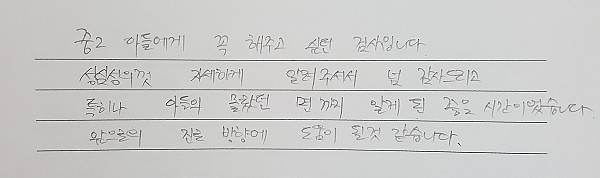 중2 아들에게 꼭 해주고 싶던 검사입니다.
자세하게 알려주셔서 넘 감사드리고
특히나 아들의 몰랐던 면까지 알게 된 좋은 시간이었습니다.
앞으로의 진로 방향에 도움이 될것 같습니다.